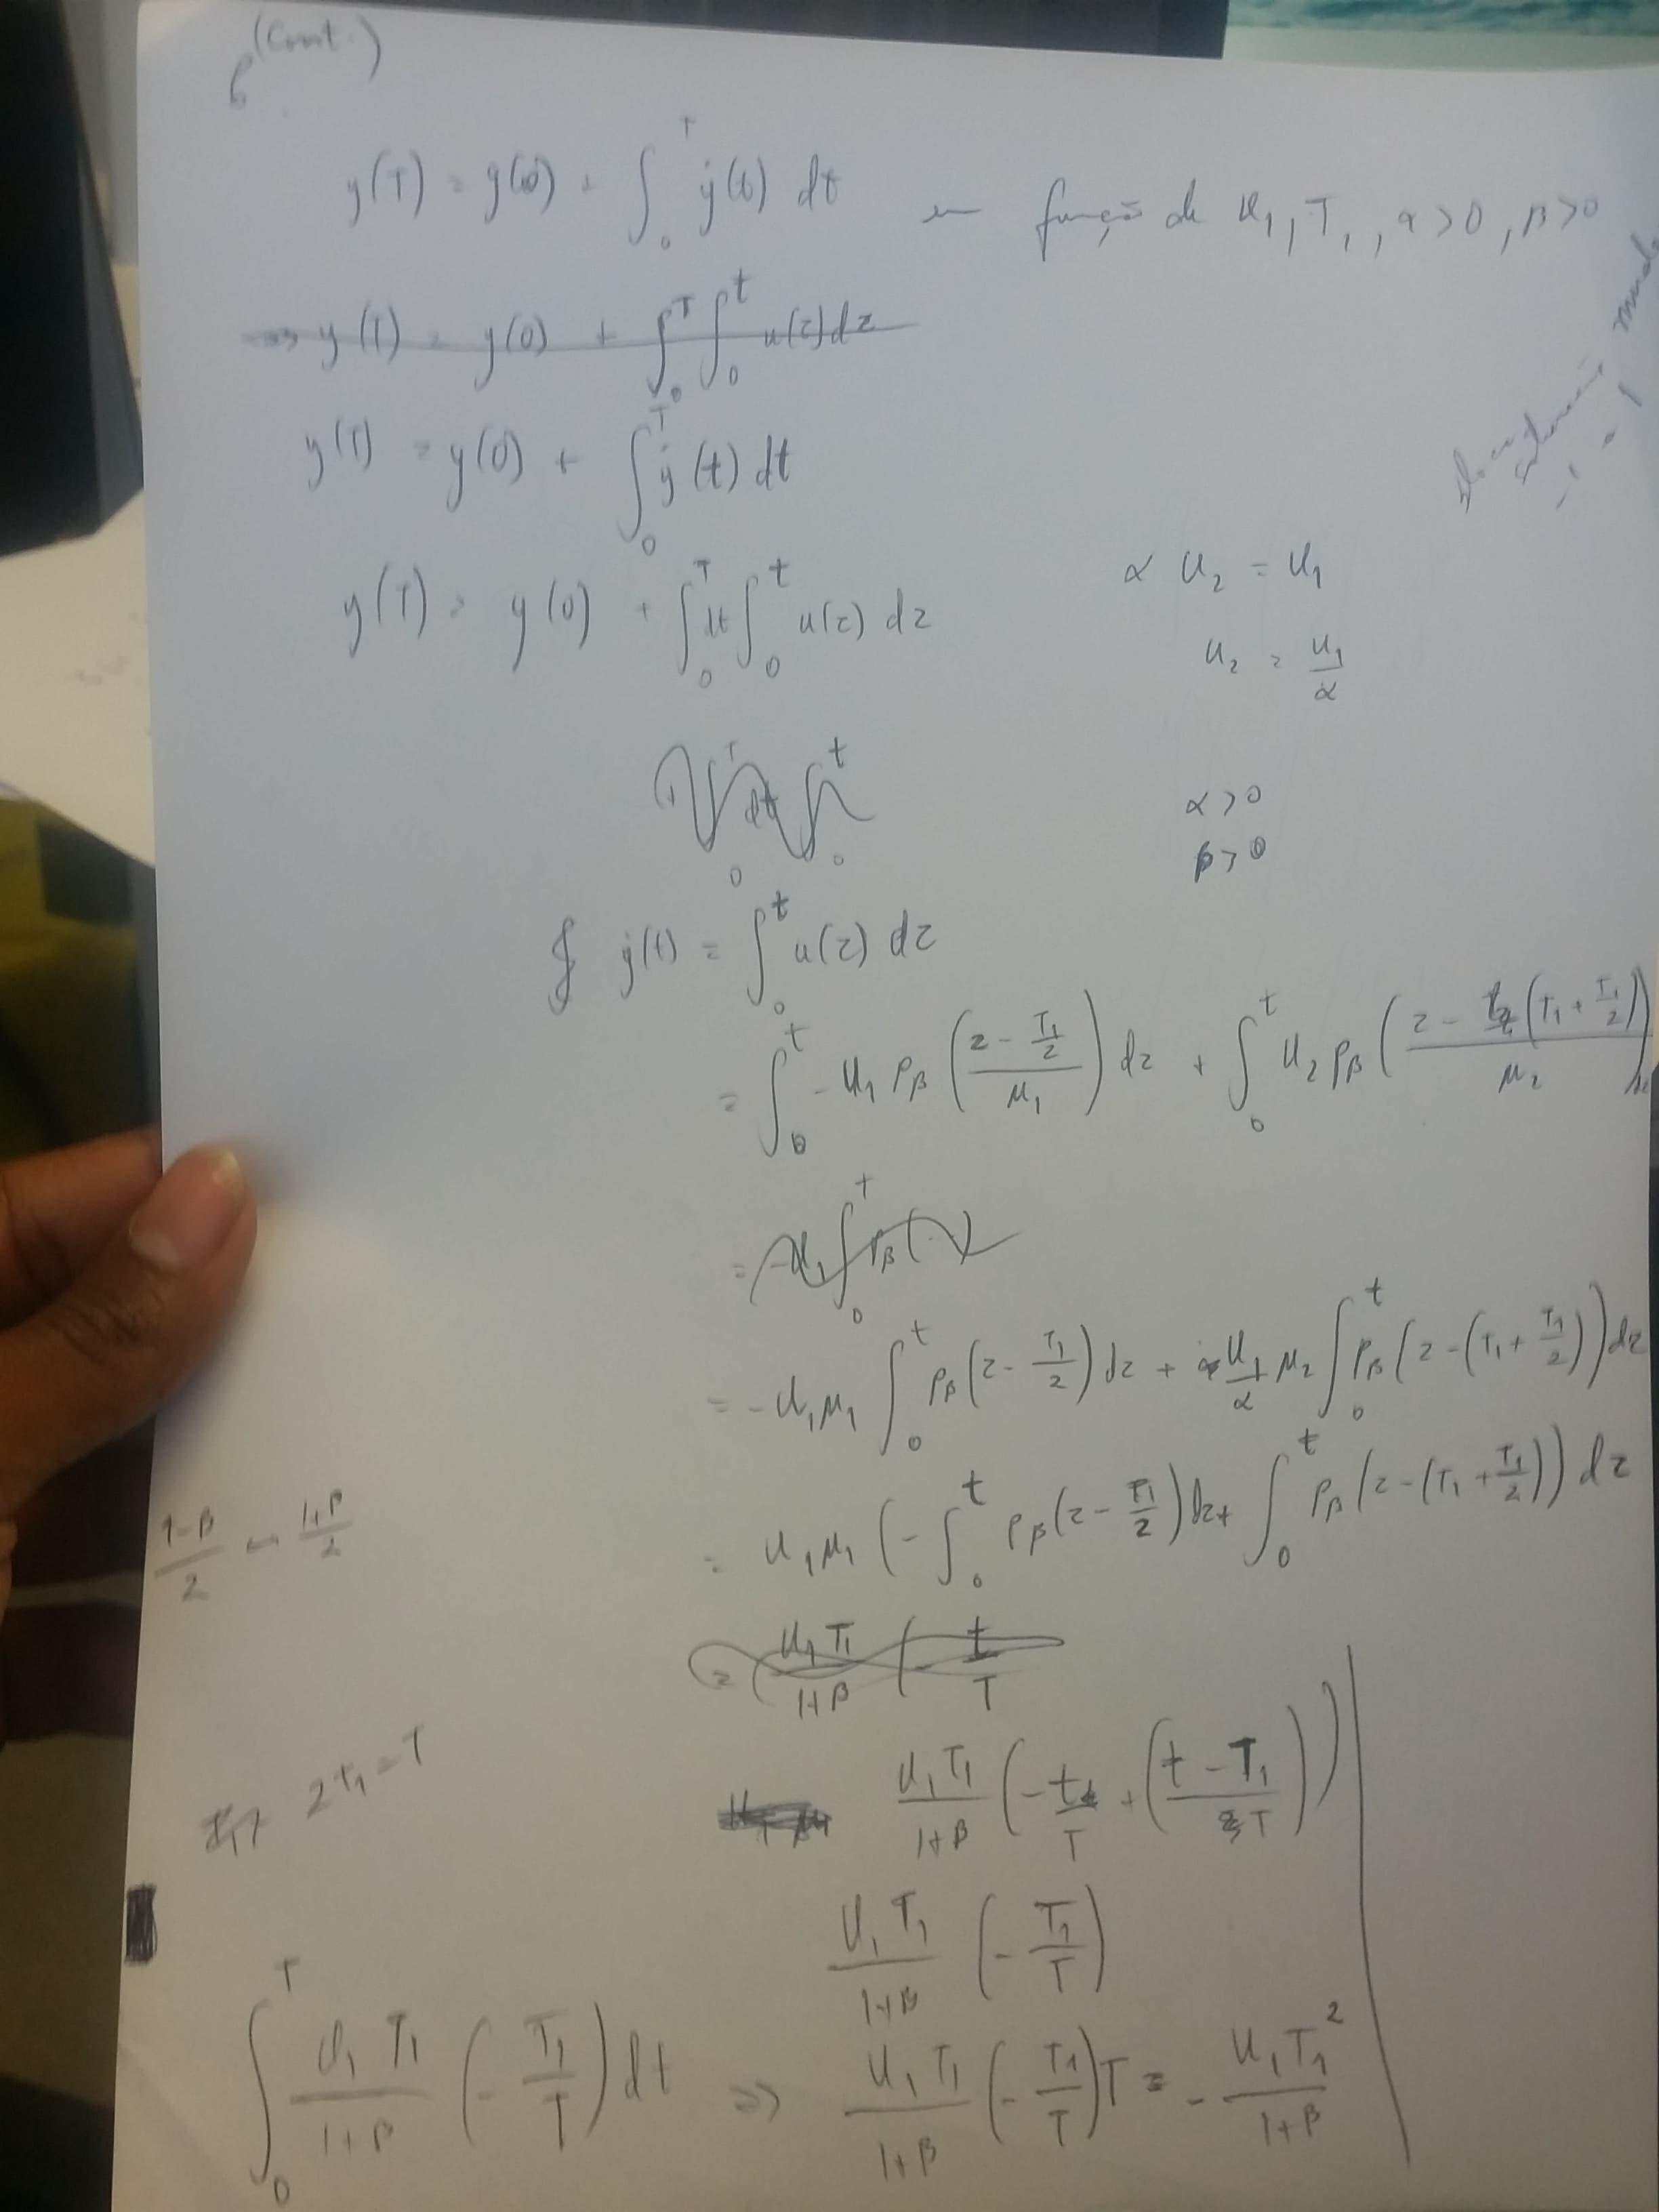 6 (Cont.)
y(T) = y(0) + ∫_0^T ẏ(t) dt função de u₁, T₁, α>0, β>0
⇒ y(T) = y(0) + ∫_0^T ∫_0^t u(z)dz
y(T) = y(0) + ∫_0^T ẏ(t) dt
α u₂ = u₁
y(T) = y(0) + ∫_0^T dt ∫_0^t u(z) dz
u₂ = u₁/α
∫_0^T dt ∫_0^t
α > 0
β > 0
ẏ(t) = ∫_0^t u(z) dz
= ∫_0^t -u₁ p_β((z - T₁/2)/μ₁) dz + ∫_0^t u₂ p_β((z - (T₁ + T₁/2))/μ₂)
= -u₁ ∫_0^t p_β( )
= -u₁μ₁ ∫_0^t p_β(z - T₁/2) dz + u₁/α μ₂ ∫_0^t p_β(z - (T₁ + T₁/2)) dz
= u₁μ₁ (-∫_0^t p_β(z - T₁/2) dz + ∫_0^t p_β(z - (T₁ + T₁/2)) dz
(1-β)/2 (1+β)/2
= u₁T₁/(1+β) (- t/T
2t₁ = T
u₁T₁/(1+β) (-t/T + ((t - T₁)/T))
u₁T₁/(1+β) (-T₁/T)
∫_0^T u₁T₁/(1+β) (-T₁/T) dt ⇒ u₁T₁/(1+β) (-T₁/T)T = -u₁T₁²/(1+β)